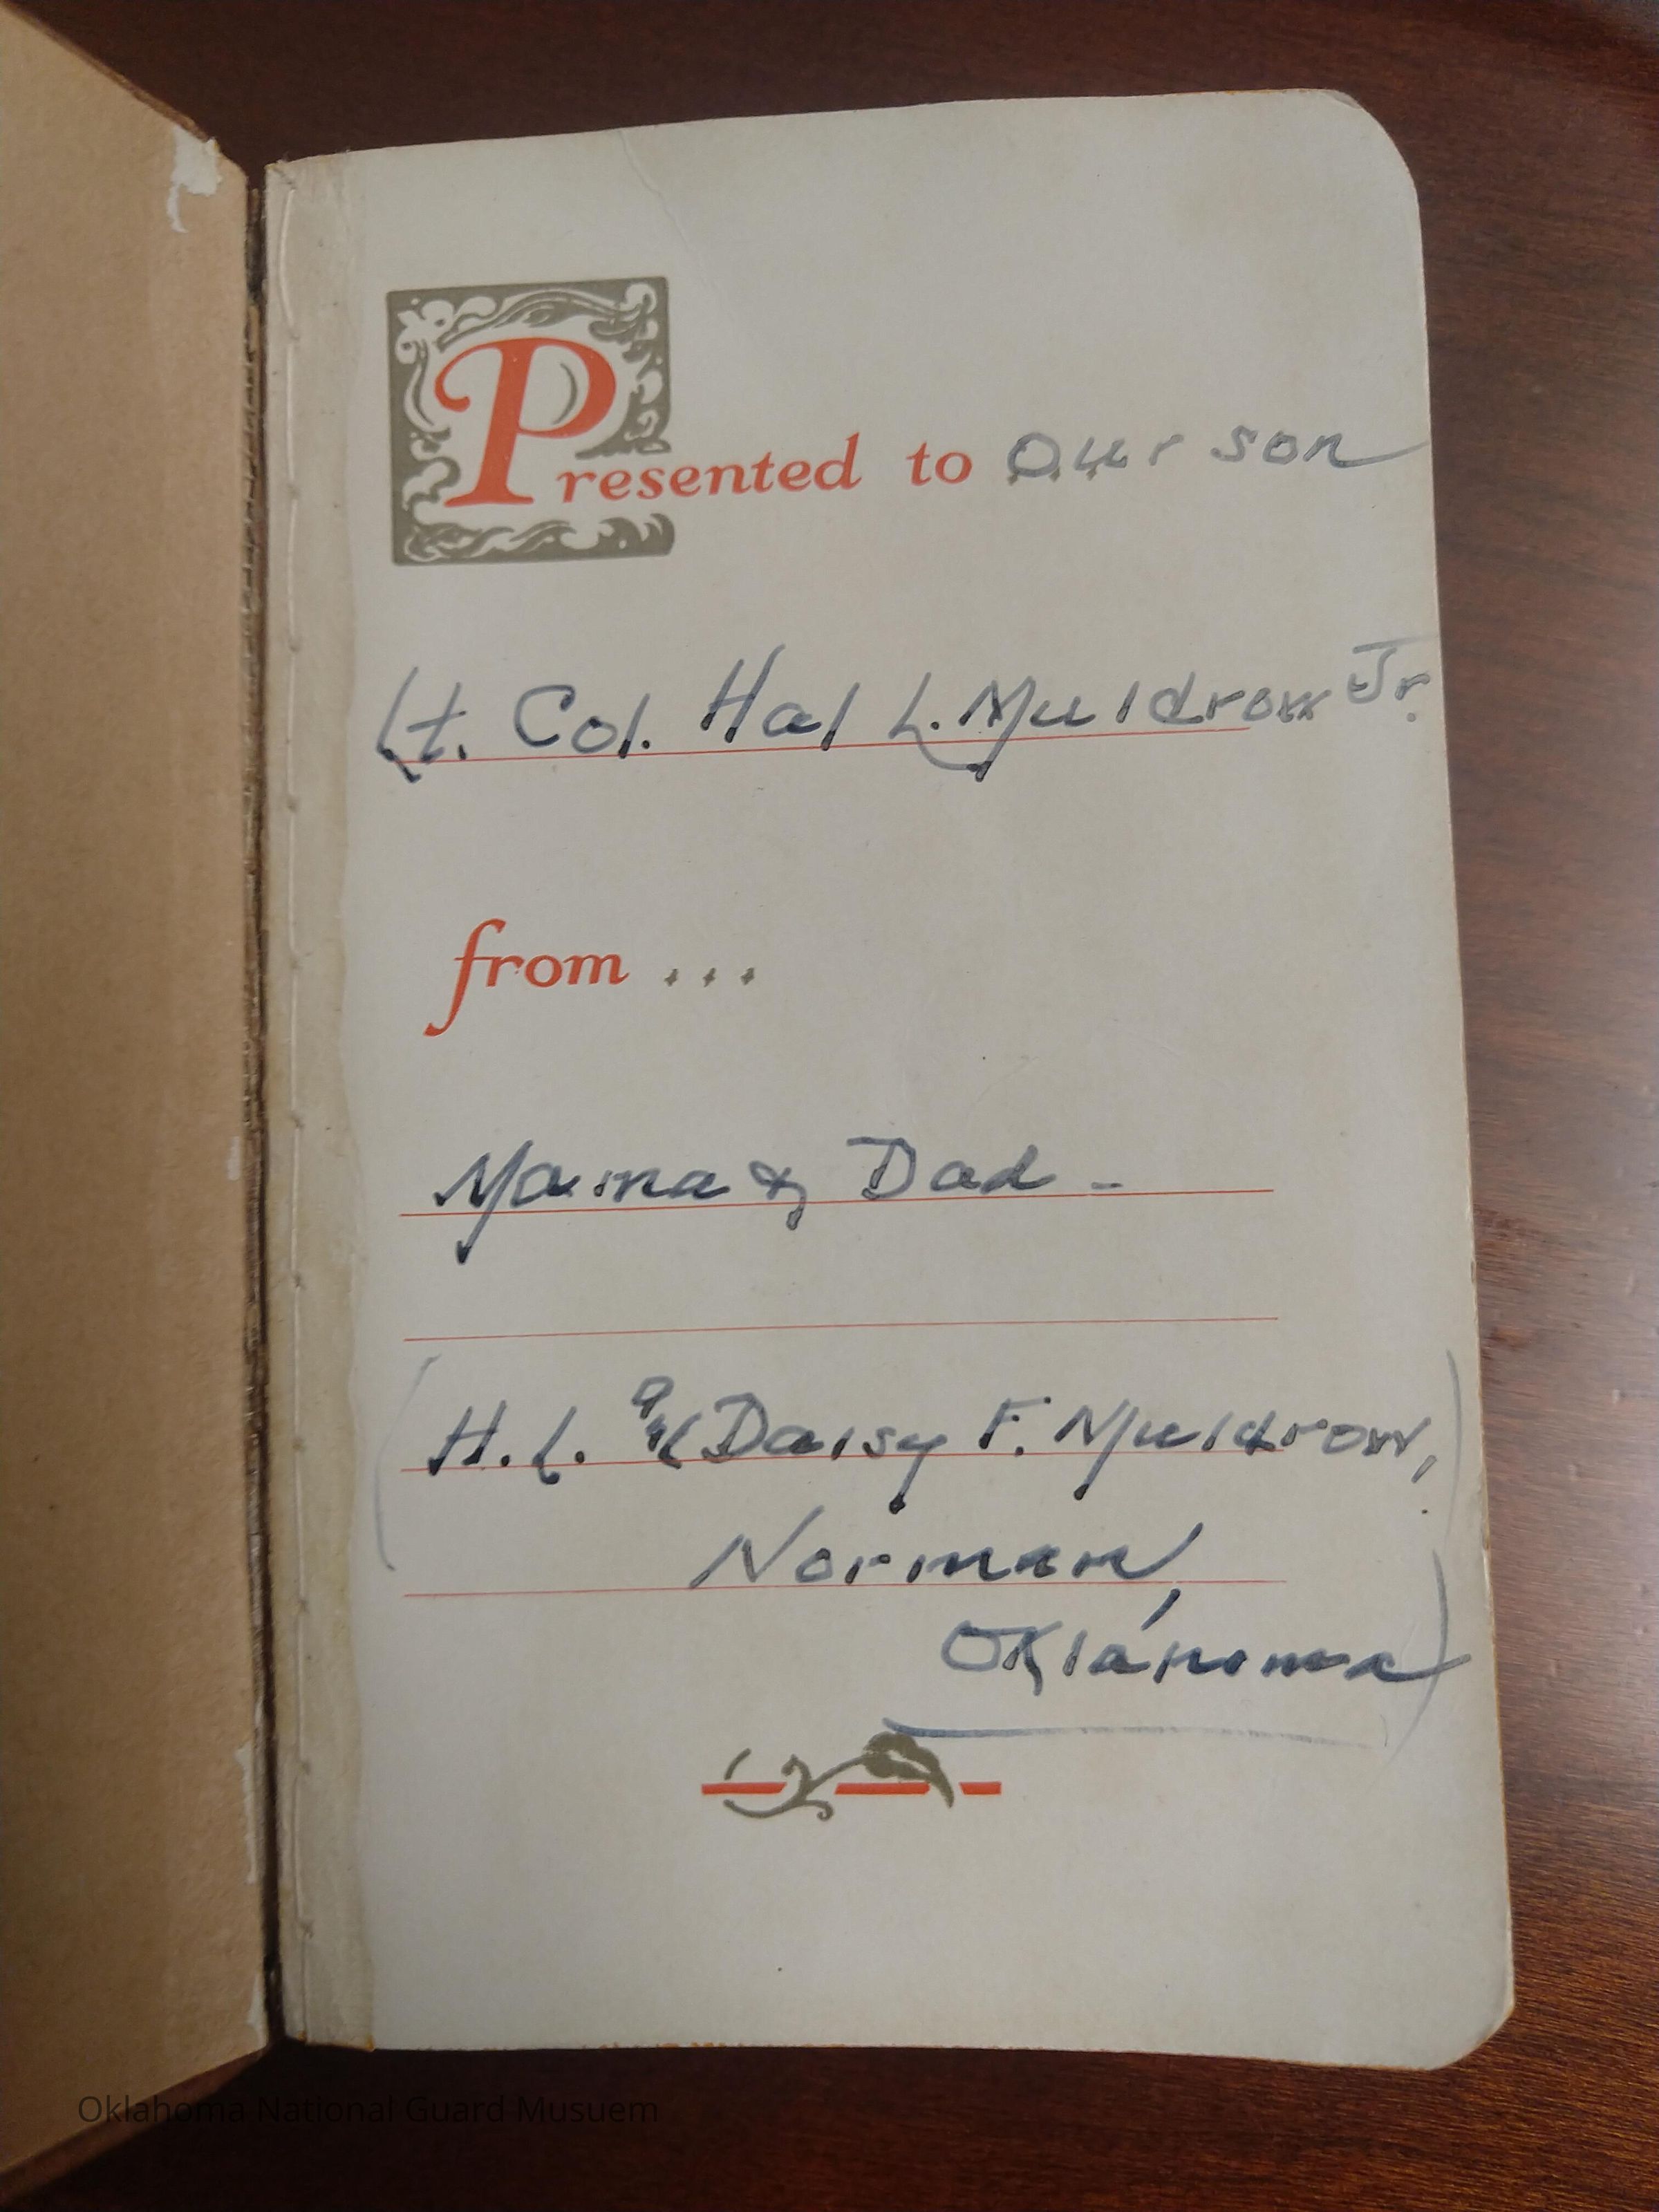 Presented to our son
Lt. Col. Hal L. Muldrow Jr.
from ...
Mama & Dad -
(H. L. and Daisy F. Muldrow,
Norman,
Oklahoma)
Oklahoma National Guard Musuem